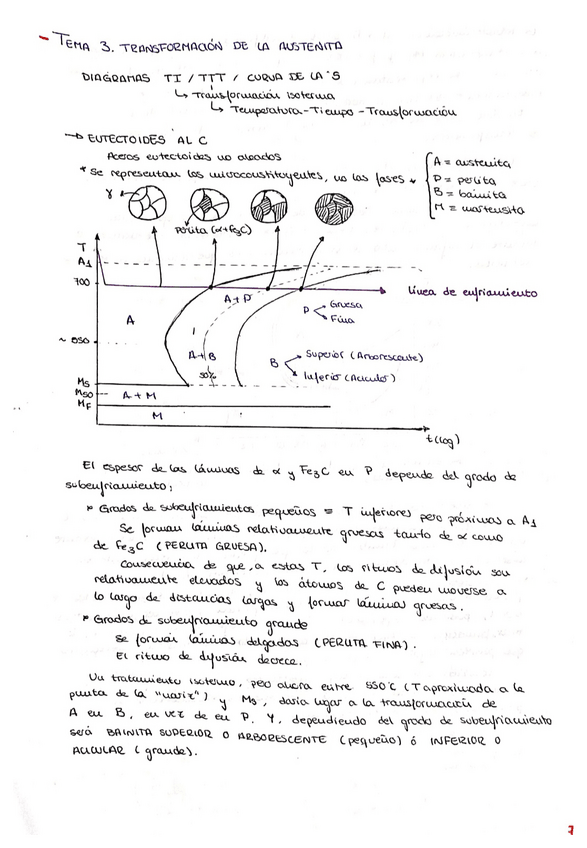 - TEMA 3. TRANSFORMACIÓN DE LA AUSTENITA
DIAGRAMAS TI / TTT / CURVA DE LA S
↳ Transformación isoterma
↳ Temperatura-Tiempo-Transformación
→ EUTECTOIDES AL C
Aceros eutectoides no aleados
* Se representan los microconstituyentes, no las fases →
A = austenita
P = perlita
B = bainita
M = martensita
γ
Perlita (α+Fe3C)
T
A1
700
línea de enfriamiento
A+P
P
Gruesa
Fina
A
~ 550
A+B
50%
B
Superior (Arborescente)
Inferior (Acicular)
Ms
M50
A + M
MF
M
t(log)
El espesor de las láminas de α y Fe3C en P depende del grado de
subenfriamiento;
* Grados de subenfriamientos pequeños = T inferiores pero próximas a A1
Se forman láminas relativamente gruesas tanto de α como
de Fe3C (PERLITA GRUESA).
Consecuencia de que, a estas T, los ritmos de difusión son
relativamente elevados y los átomos de C pueden moverse a
lo largo de distancias largas y formar láminas gruesas.
* Grados de subenfriamiento grande
Se forman láminas delgadas (PERLITA FINA).
El ritmo de difusión decrece.
Un tratamiento isotermo, pero ahora entre 550°C (T aproximada a la
punta de la "nariz") y Ms, daría lugar a la transformación de
A en B, en vez de en P. Y, dependiendo del grado de subenfriamiento
será BAINITA SUPERIOR O ARBORESCENTE (pequeño) ó INFERIOR O
ACICULAR (grande).